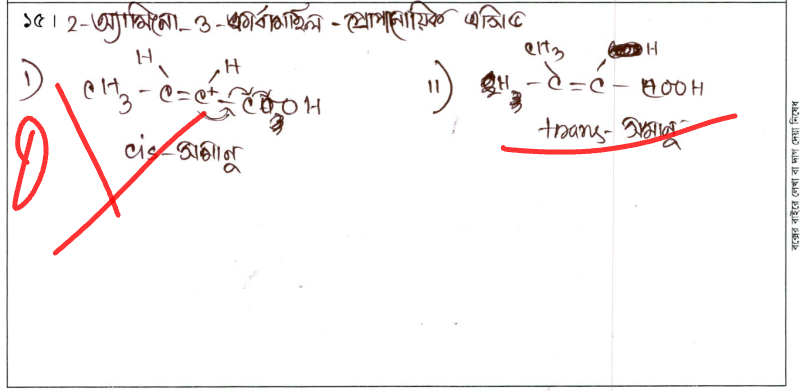 ১৫। 2-অ্যামিনো-3-কার্বামাইল-প্রোপানোয়িক এসিড
I) H H
CH3 - C = C+ - COOH
cis-সমানু
II) CH3 H
H - C = C - COOH
trans-সমানু
বক্সের বাইরে লেখা বা দাগ দেয়া নিষেধ